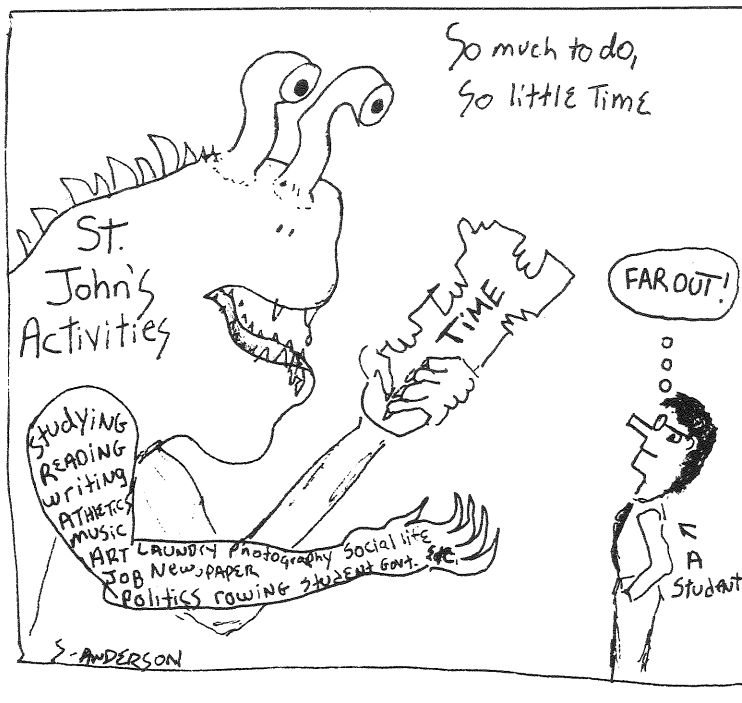 So much to do,
So little Time
St.
John's
Activities
TIME
FAR OUT!
Studying
READING
writing
AThletics
music
ART LAUNDRY Photography Social life
JOB Newspaper Student Govt. Etc.
Politics rowing
A
Student
S-ANDERSON